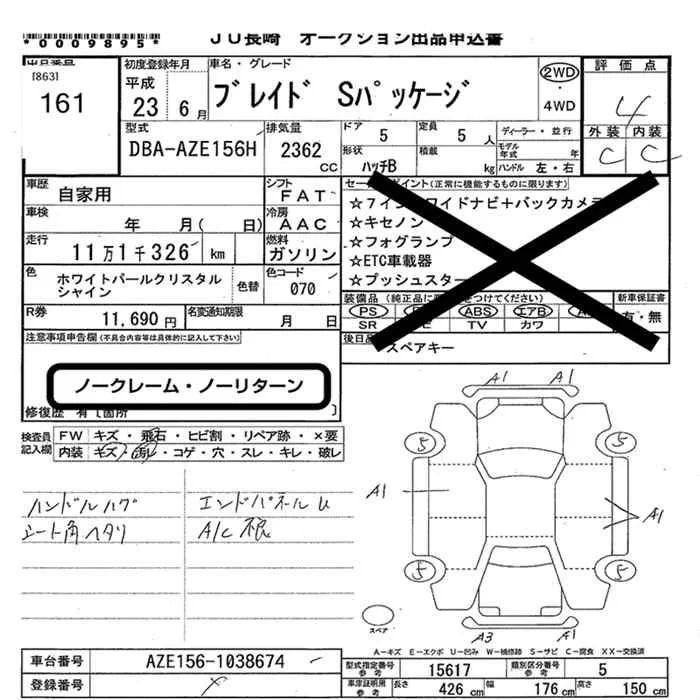 *0009895*
JU長崎 オークション出品申込書
出品番号
[863]
161
初度登録年月
平成
23 6月
車名・グレード
ブレイド Sパッケージ
2WD
・
4WD
評価点
4
外装 内装
C C
型式
DBA-AZE156H
排気量
2362
CC
ドア 5
定員 5 人
形状 ハッチB
積載 kg
ディーラー・並行
モデル年式 年
ハンドル 左・右
車歴
自家用
シフト
FAT
車検
年 月( 日)
冷房
AAC
走行
11万1千326 km
燃料
ガソリン
色
ホワイトパールクリスタル
シャイン
色替
色コード
070
R券
11,690 円
名変通知期限
月 日
セールスポイント(正常に機能するものに限ります)
☆7インチワイドナビ+バックカメラ
☆キセノン
☆フォグランプ
☆ETC車載器
☆プッシュスター
装備品(純正品に をつけてください)
PS ABS エアB
SR TV カワ
新車保証書
有・無
後日品
スペアキー
注意事項申告欄(不具合内容等は具体的に記入して下さい)
ノークレーム・ノーリターン
修復歴 有 [箇所 ]
検査員
記入欄
FW キズ・飛石・ヒビ割・リペア跡・×要
内装 キズ・汚れ・コゲ・穴・スレ・キレ・破レ
ハンドルハゲ
シート角ヘタリ
エンドパネルU
A/C 根
A1 A1
5 5
A1 A1
5 5
A3 A1
スペア
A－キズ E－エクボ U－凹み W－補修跡 S－サビ C－腐食 XX－交換済
車台番号 AZE156-1038674
登録番号
型式指定番号
参考
15617
類別区分番号
参考
5
車庫証明用
参考
長さ 426 cm 幅 176 cm 高さ 150 cm